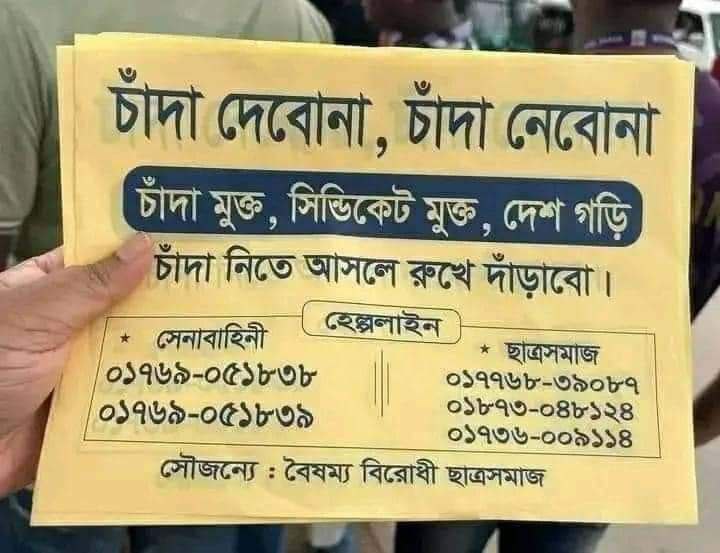 চাঁদা দেবোনা, চাঁদা নেবোনা
চাঁদা মুক্ত, সিন্ডিকেট মুক্ত, দেশ গড়ি
চাঁদা নিতে আসলে রুখে দাঁড়াবো।
হেল্পলাইন
* সেনাবাহিনী
০১৭৬৯-০৫১৮৩৮
০১৭৬৯-০৫১৮৩৯
* ছাত্রসমাজ
০১৭৭৬৮-৩৯০৮৭
০১৮৭৩-০৪৮১২৪
০১৭৩৬-০০৯১১৪
সৌজন্যে : বৈষম্য বিরোধী ছাত্রসমাজ